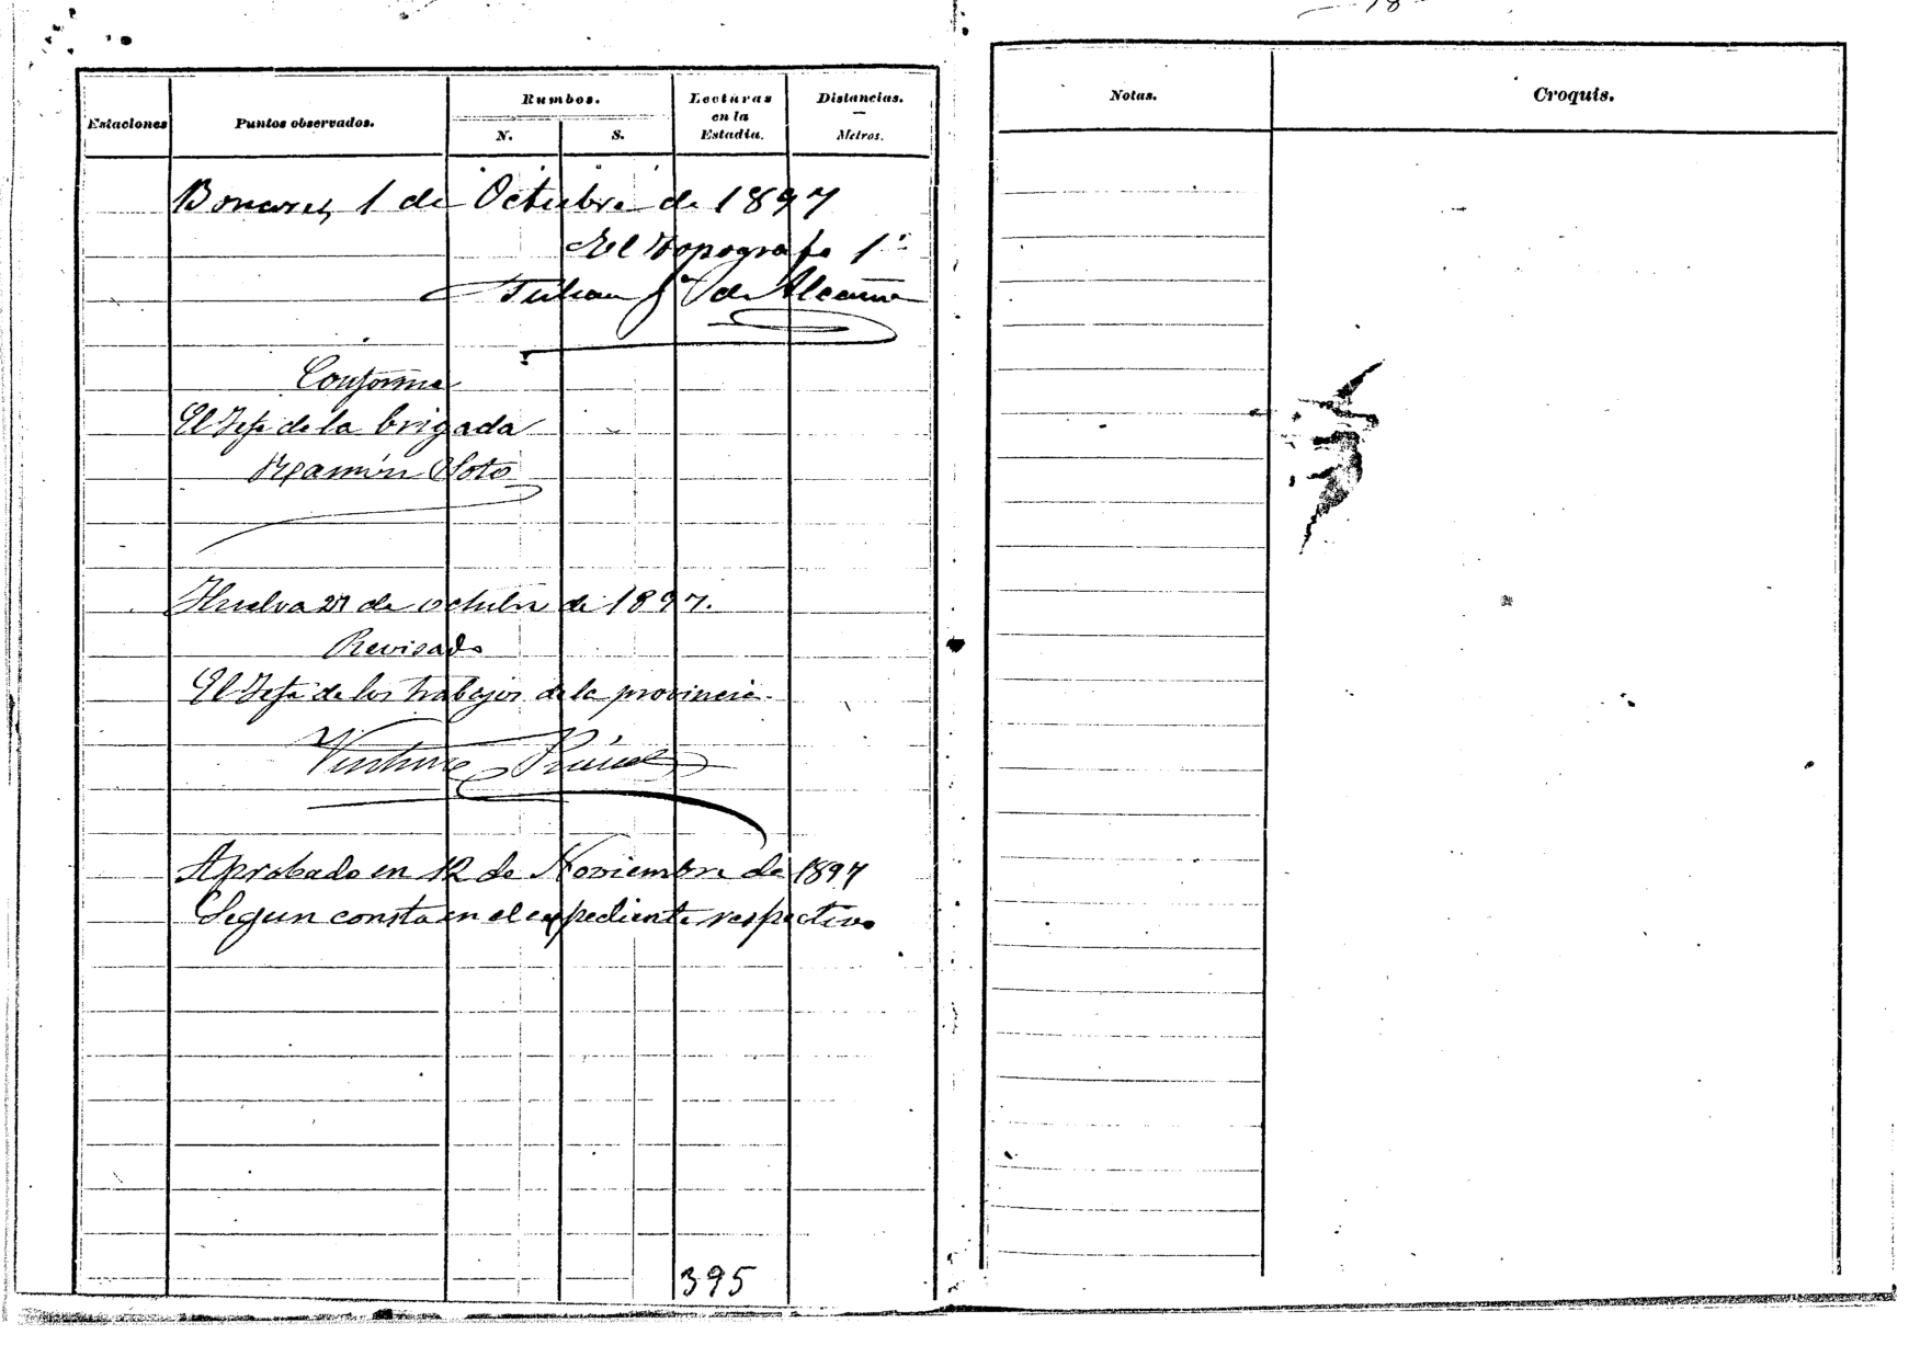 18
Estaciones
Puntos observados.
Rumbos.
N.
S.
Lecturas
en la
Estadia.
Distancias.
Metros.
Bonares, 1 de Octubre de 1897
El topografo 1º
Julian de
Conforme
El Jefe de la brigada
Ramón Soto
Huelva 27 de octubre de 1897.
Revisado
El Jefe de los trabajos de la provincia.
Ventura
Aprobado en 12 de Noviembre de 1897
Segun consta en el expediente respectivo
395
Notas.
Croquis.